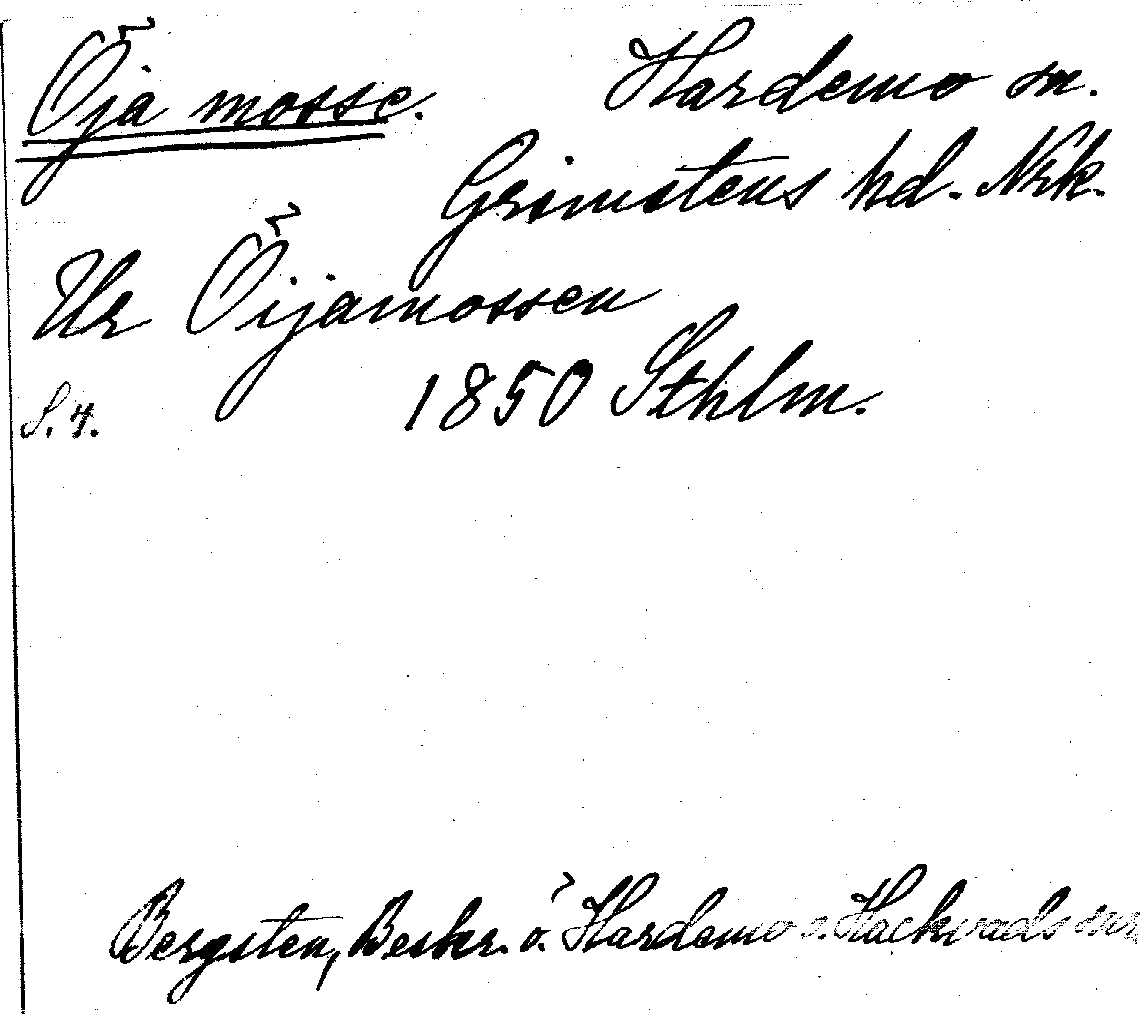 Öja mosse. Hardemo sn.
Grimstens hd. Nrk.
Ur Öijamossen
S. 4. 1850 Sthlm.
Bergsten, Beskr. ö. Hardemo o. Hackvads snr